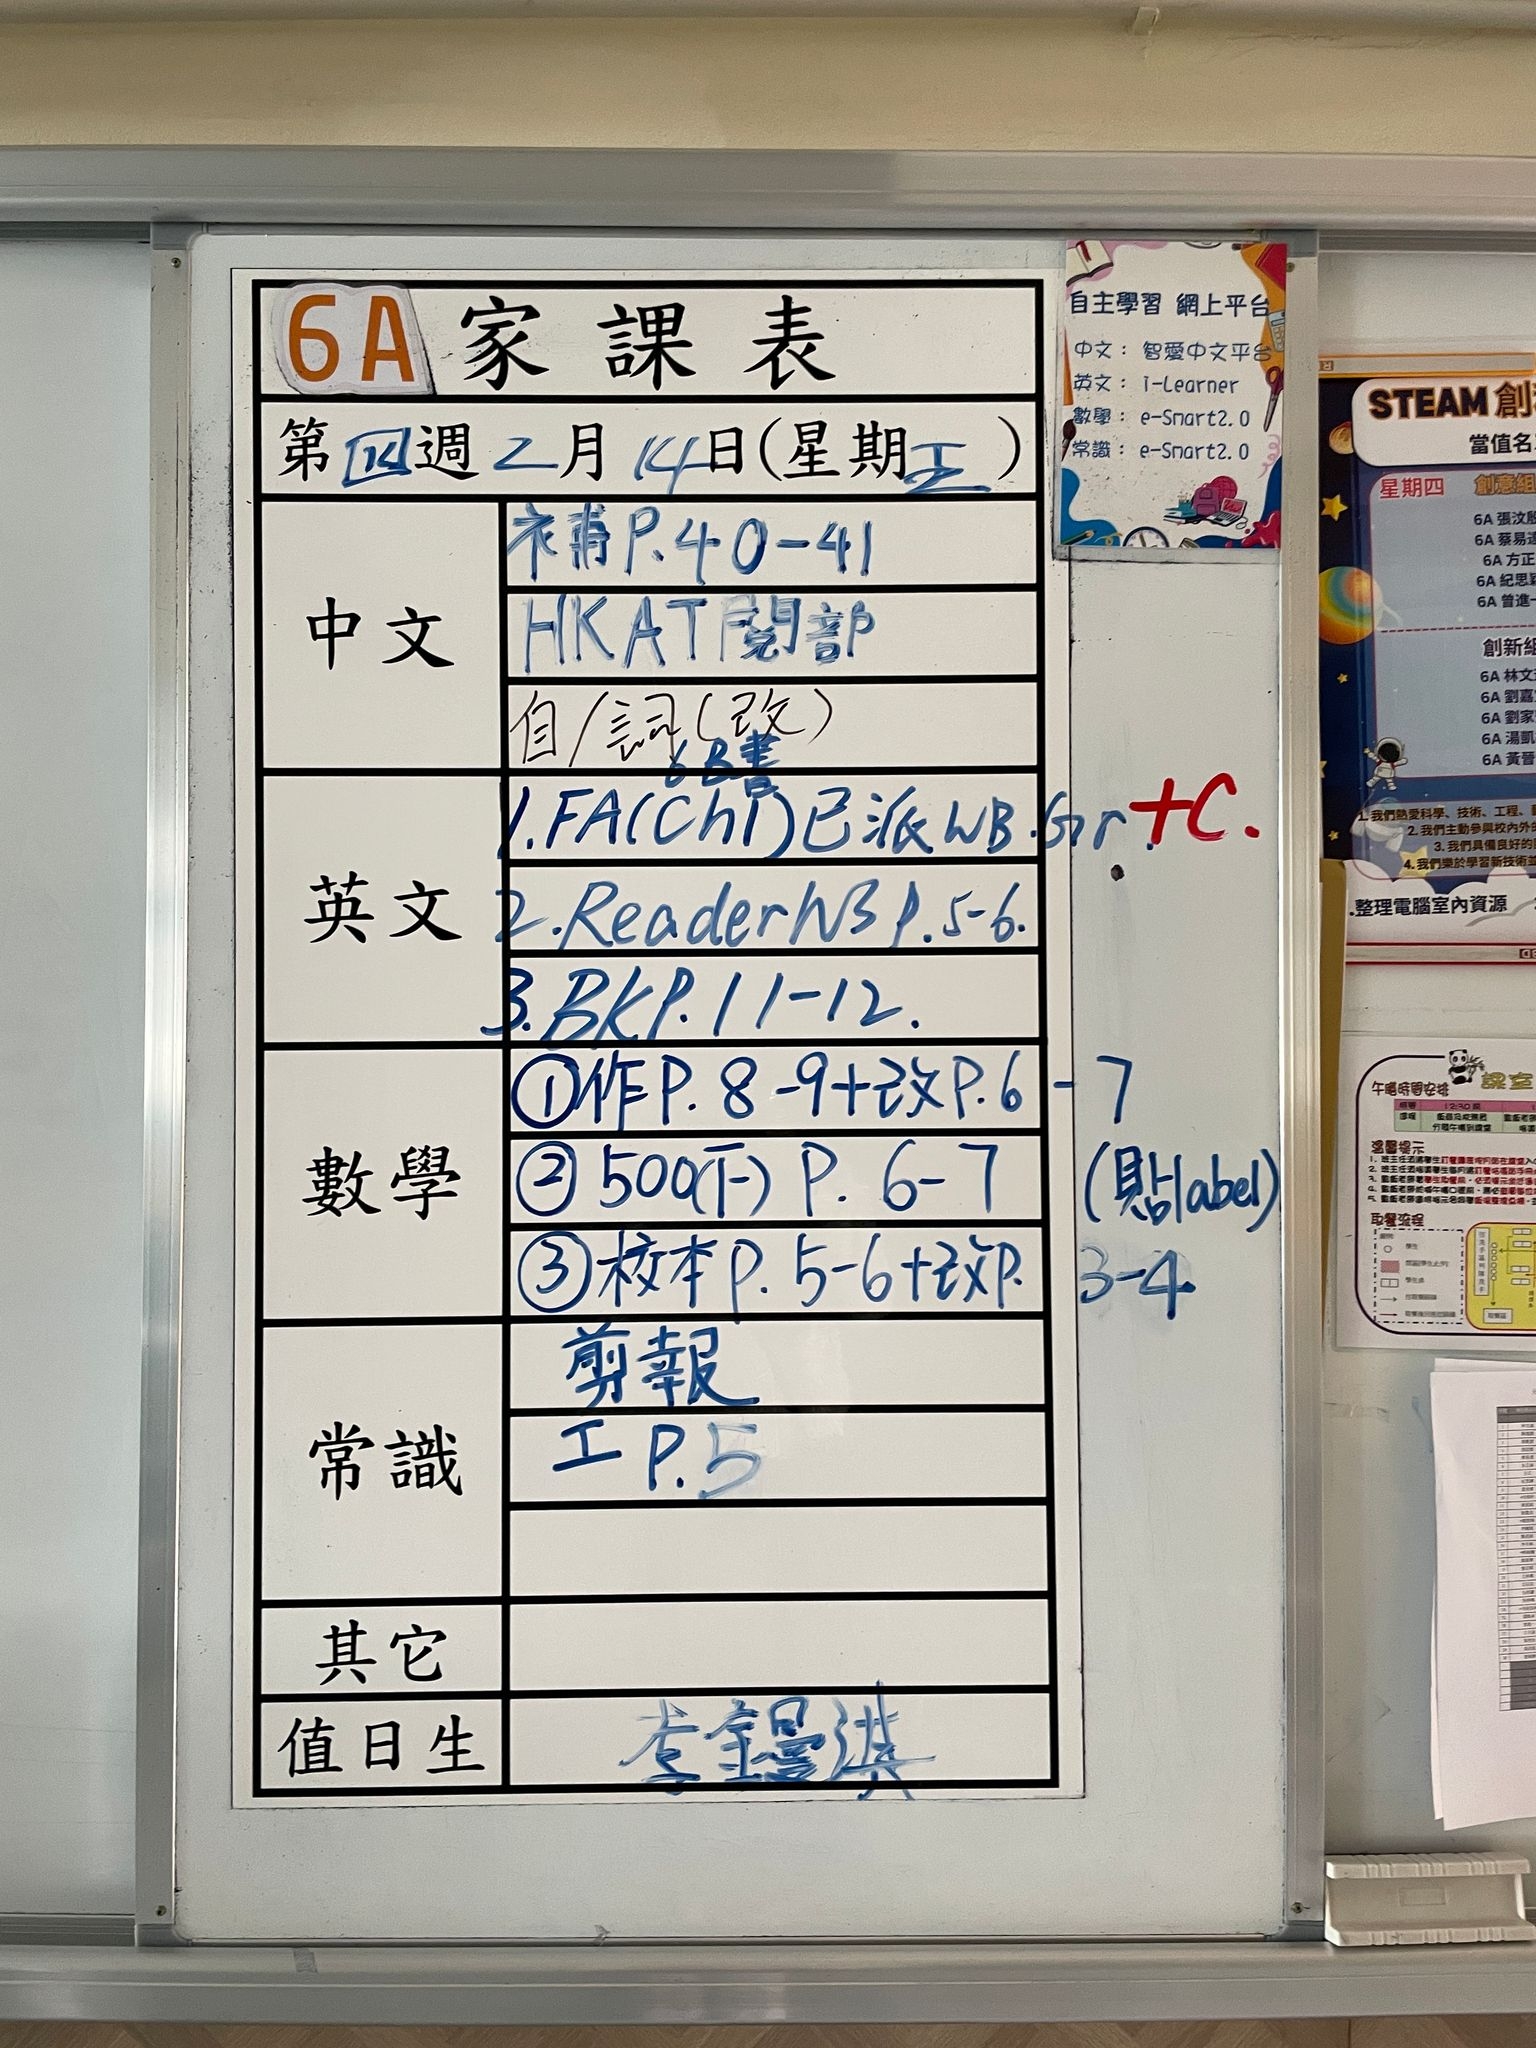 6A 家課表
第四週2月14日(星期五)
中文
補P.40-41
HKAT閱部
自/詞(改)
英文
6B書
1.FA(Ch1)已派WB.Gr.+C.
2.ReaderWB P.5-6.
3.BKP.11-12.
數學
①作P.8-9+改P.6-7
②500(下) P. 6-7 (貼label)
③校本P.5-6+改P.3-4
常識
剪報
工P.5
其它
值日生
李鏝淇
自主學習 網上平台
中文: 智愛中文平台
英文: i-Learner
數學: e-Smart2.0
常識: e-Smart2.0
STEAM 創
當值名
星期四 創意組
6A 張汶
6A 蔡易達
6A 方正
6A 紀思穎
6A 曾進
創新組
6A 林文
6A 劉嘉
6A 劉家
6A 湯凱
6A 黃晉
1. 我們熱愛科學、技術、工程、
2. 我們主動參與校內外的
3. 我們具備良好的
4. 我們樂於學習新技術並
.整理電腦室內資源
課室
午膳時間安排
12:30
溫馨提示
取餐流程